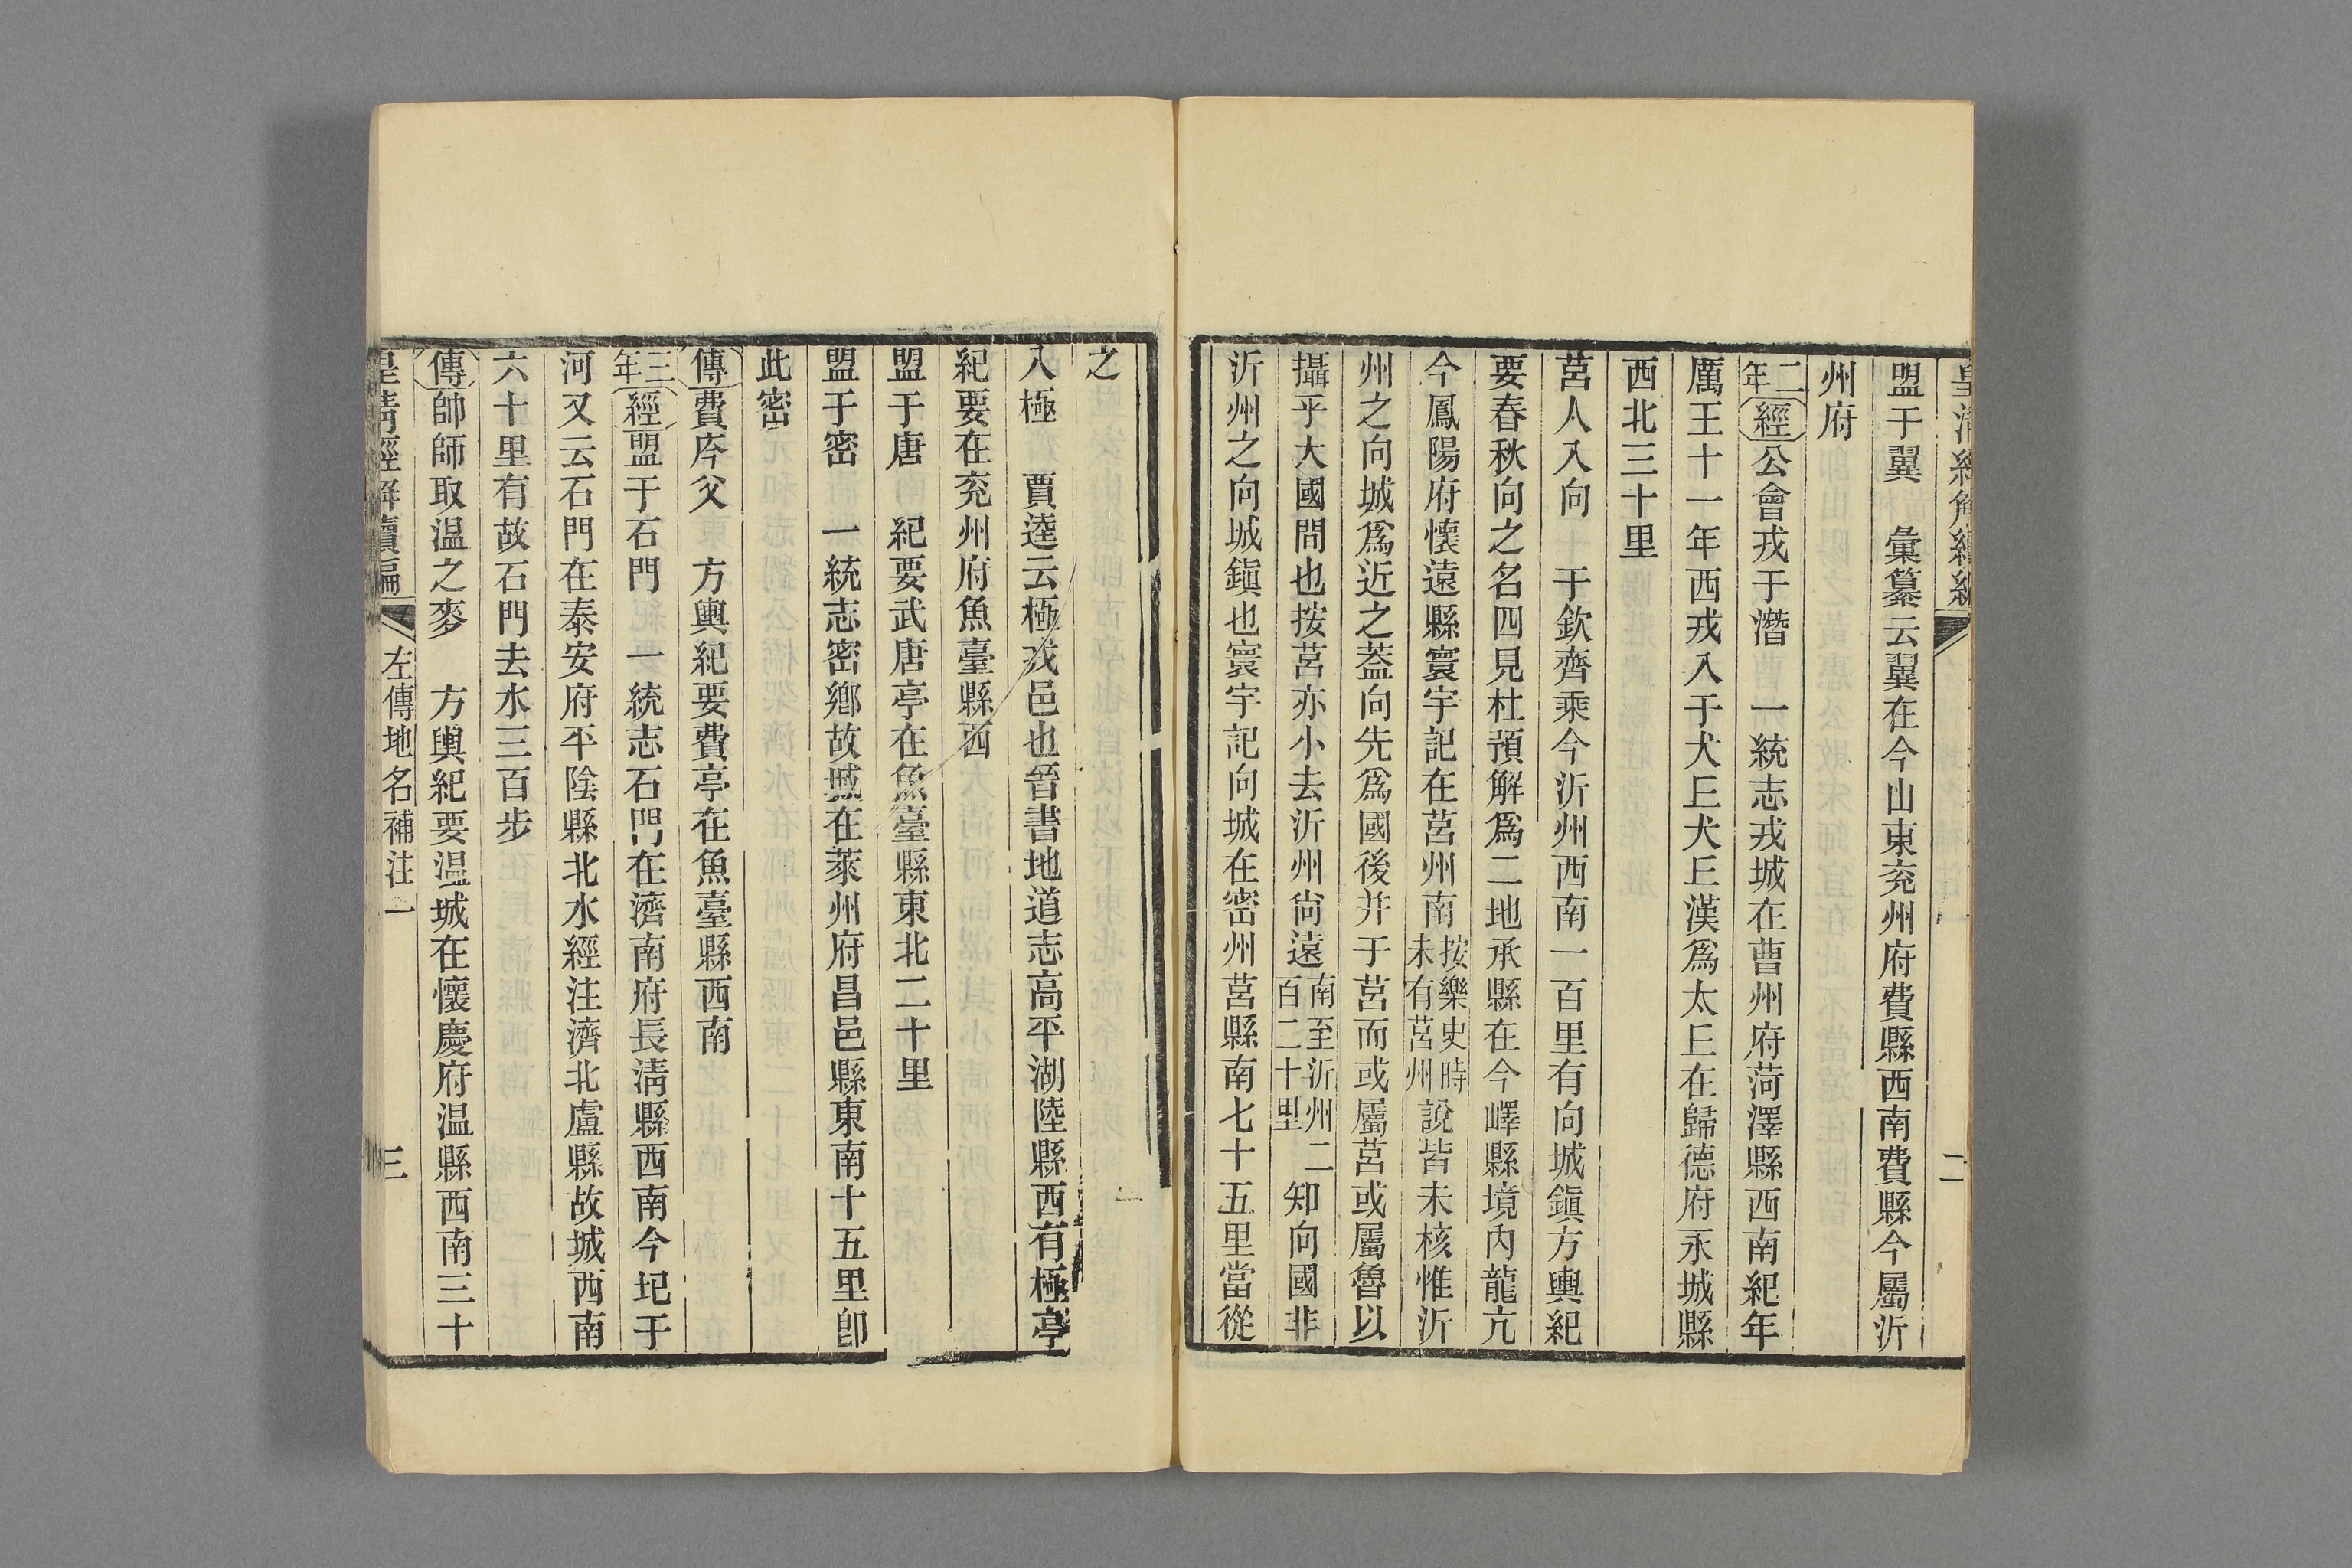 皇清經解續編
二
盟于翼　彙纂云翼在今山東兖州府費縣西南費縣今屬沂
州府
二年經公會戎于潛　一統志戎城在曹州府菏澤縣西南紀年
厲王十一年西戎入于犬丘犬丘漢爲太丘在歸德府永城縣
西北三十里
莒人入向　于欽齊乘今沂州西南一百里有向城鎭方輿紀
要春秋向之名四見杜預解爲二地承縣在今嶧縣境內龍亢
今鳳陽府懷遠縣寰宇記在莒州南按樂史時未有莒州說皆未核惟沂
州之向城爲近之蓋向先爲國後并于莒而或屬莒或屬魯以
攝乎大國間也按莒亦小去沂州尙遠南至沂州二百二十里知向國非
沂州之向城鎭也寰宇記向城在密州莒縣南七十五里當從
之
入極　賈逵云極戎邑也晉書地道志高平湖陸縣西有極亭
紀要在兖州府魚臺縣西
盟于唐　紀要武唐亭在魚臺縣東北二十里
盟于密　一統志密鄉故城在萊州府昌邑縣東南十五里卽
此密
傳費庈父　方輿紀要費亭在魚臺縣西南
三年經盟于石門　一統志石門在濟南府長淸縣西南今圮于
河又云石門在泰安府平陰縣北水經注濟北盧縣故城西南
六十里有故石門去水三百步
傳帥師取温之麥　方輿紀要温城在懷慶府温縣西南三十
皇清經解續編
左傳地名補注一
三